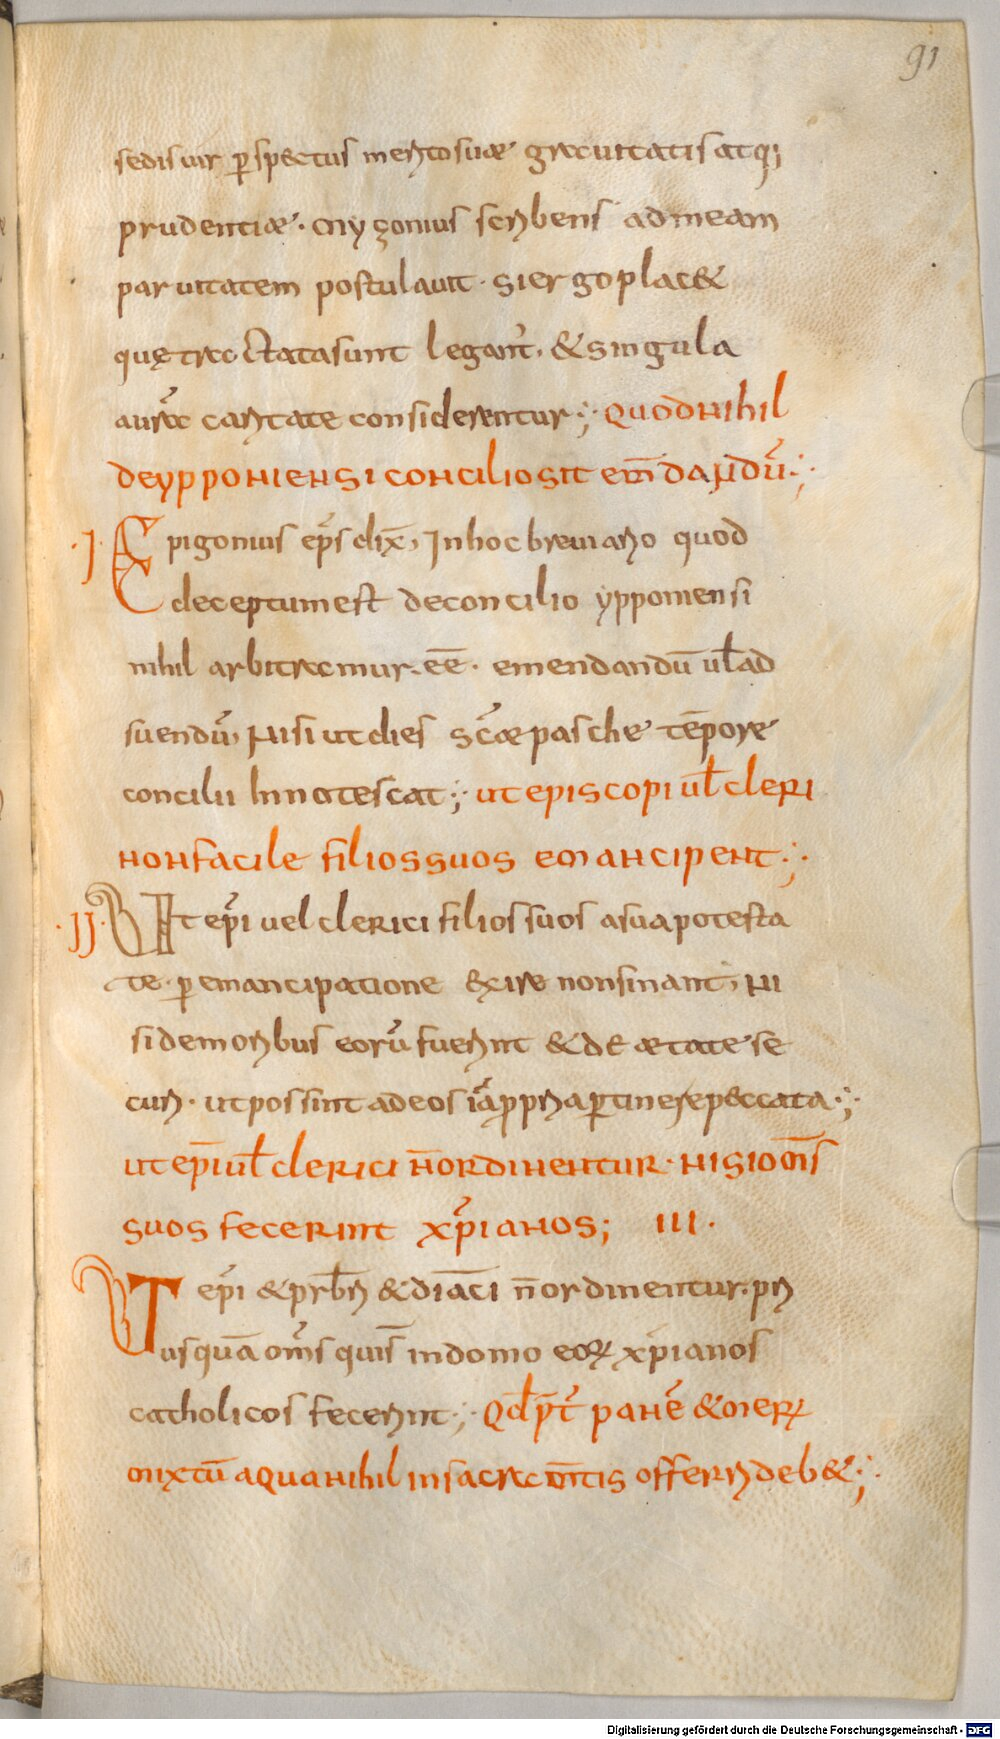 91
sedis uir p̲ spectus merito suæ grauitatis atq;
prudentiæ · Myzonius scribens ad meam
paruitatem postulauit · si ergo plac&
quę tractata sunt legant᷑, & singula
aure caritate considerentur; · quod nihil
de ypponiensi concilio sit em̄dandū;
·I· Epigonius ep̄s dix̄, In hoc breuiario quod
deceptum est de concilio ypponiensi
nihil arbitramur · eē · emendandū ul̄ ad
suendū, Nisi ut dies sc̄æ pasche tēpore
concilii Innotescat; · ut episcopi ul̄ cleri
non facile filios suos emancipent; ·
·II· Ut ep̄i uel clerici filios suos a sua potesta
te · p̲ emancipatione exire non sinant, Ni
si de moribus eorū fuerint & de ætate se
curi · ut possint ad eos iā p̲pri a p̲tinere peccata; ·
ut ep̄i ul̄ clerici n̄ ordinentur · nisi om̄s
suos fecerint xp̄ianos; III ·
UT ep̄i & prb̄ri & diāci n̄ ordinentur · pri
us quā om̄s qui s̄ in domo eoꝝ xp̄ianos
catholicos fecerint; · Qd̄ p̄t᷑ panē & merꝝ
mixtū aqua nihil in sacram̄tis offerri deb&; ·
Digitalisierung gefördert durch die Deutsche Forschungsgemeinschaft - DFG